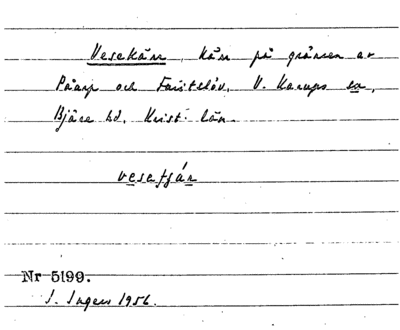 Vesekärr, kärr på gränsen av
Påarp och Faritslöv, V. Karups sn,
Bjäre hd, Krist. län.
vesatjár
Nr 5199.
I. Ingers 1956.